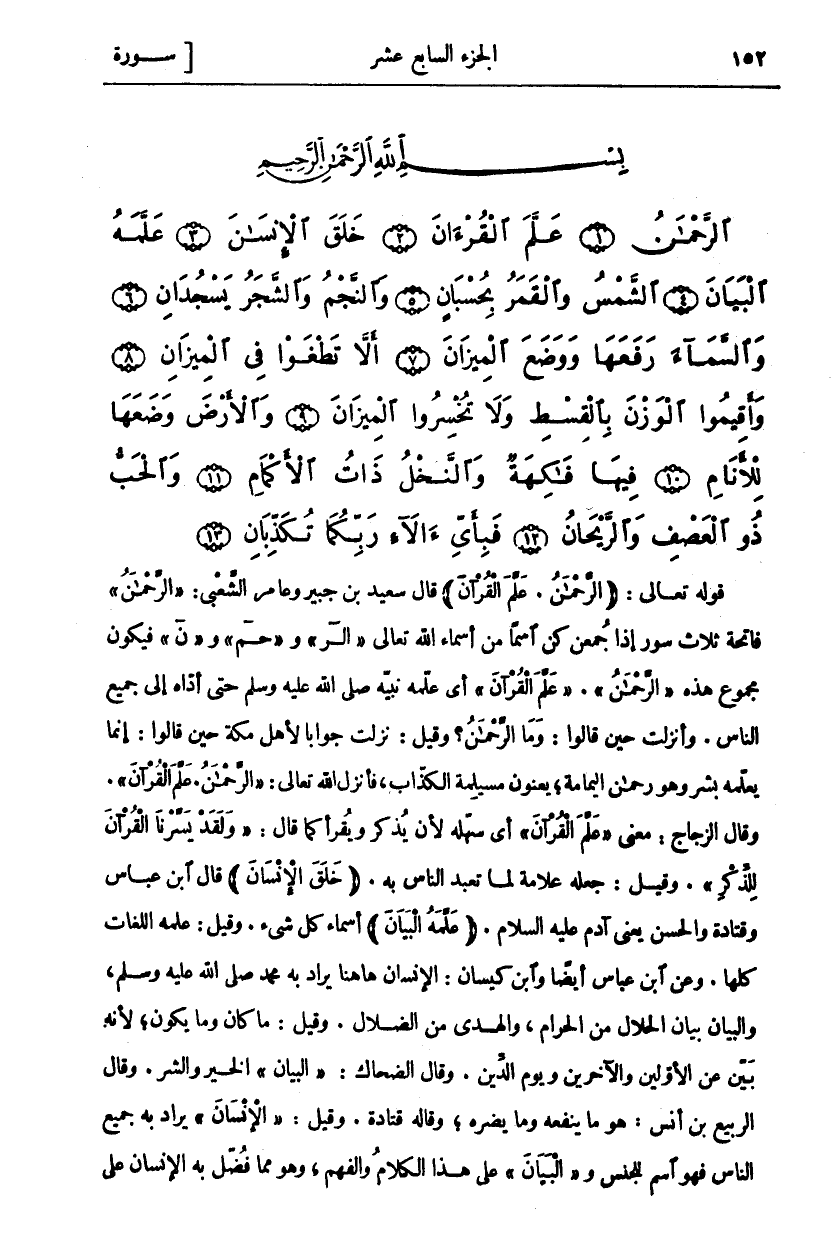 ١٥٢ الجزء السابع عشر [ ســـورة
بِسْمِ ٱللَّهِ ٱلرَّحْمَٰنِ ٱلرَّحِيمِ
ٱلرَّحْمَٰنُ ١ عَلَّمَ ٱلْقُرْءَانَ ٢ خَلَقَ ٱلْإِنسَٰنَ ٣ عَلَّمَهُ
ٱلْبَيَانَ ٤ ٱلشَّمْسُ وَٱلْقَمَرُ بِحُسْبَانٍ ٥ وَٱلنَّجْمُ وَٱلشَّجَرُ يَسْجُدَانِ ٦
وَٱلسَّمَآءَ رَفَعَهَا وَوَضَعَ ٱلْمِيزَانَ ٧ أَلَّا تَطْغَوْا فِى ٱلْمِيزَانِ ٨
وَأَقِيمُوا ٱلْوَزْنَ بِٱلْقِسْطِ وَلَا تُخْسِرُوا ٱلْمِيزَانَ ٩ وَٱلْأَرْضَ وَضَعَهَا
لِلْأَنَامِ ١٠ فِيهَا فَٰكِهَةٌ وَٱلنَّخْلُ ذَاتُ ٱلْأَكْمَامِ ١١ وَٱلْحَبُّ
ذُو ٱلْعَصْفِ وَٱلرَّيْحَانُ ١٢ فَبِأَىِّ ءَالَآءِ رَبِّكُمَا تُكَذِّبَانِ ١٣
قوله تعــالى : ﴿ الرَّحْمَٰنُ . عَلَّمَ الْقُرْآنَ ﴾ قال سعيد بن جبير وعامر الشَّعْبي: «الرَّحْمَٰنُ»
فاتحة ثلاث سور إذا جُمعن كن ٱسمًا من أسماء الله تعالى « الٓرٰ » و «حـمٓ» و « نٓ » فيكون
مجموع هذه « الرَّحْمَٰنُ » . « عَلَّمَ الْقُرْآنَ » أى علّمه نبيّه صلى الله عليه وسلم حتى أدّاه إلى جميع
الناس . وأنزلت حين قالوا : وَمَا الرَّحْمَٰنُ؟ وقيل : نزلت جوابا لأهل مكة حين قالوا : إنما
يعلّمه بشر وهو رحمٰن اليمامة؛ يعنون مسيلمة الكذّاب، فأنزل الله تعالى: «الرَّحْمَٰنُ. عَلَّمَ الْقُرْآنَ» .
وقال الزجاج : معنى «عَلَّمَ الْقُرْآنَ» أى سهّله لأن يُذكر ويُقرأ كما قال : « وَلَقَدْ يَسَّرْنَا الْقُرْآنَ
لِلذِّكْرِ » . وقيــل : جعله علامة لمــا تعبد الناس به . ﴿ خَلَقَ الْإِنْسَانَ ﴾ قال ٱبن عبــاس
وقتادة والحسن يعنى آدم عليه السلام . ﴿ عَلَّمَهُ الْبَيَانَ ﴾ أسماء كل شىء . وقيل : علمه اللغات
كلها . وعن ٱبن عباس أيضًا وٱبن كيسان : الإنسان هاهنا يراد به محمد صلى الله عليه وسلم،
والبيان بيان الحلال من الحرام ، والهــدى من الضــلال . وقيل : ما كان وما يكون؛ لأنه
بَيّن عن الأوّلين والآخرين ويوم الدِّين . وقال الضحاك : « البيان » الخــير والشر . وقال
الربيع بن أنس : هو ما ينفعه وما يضره ؛ وقاله قتادة . وقيل : « الْإِنْسَانَ » يراد به جميع
الناس فهو ٱسم للجنس و « الْبَيَانَ » على هــذا الكلامُ والفهم ، وهو مما فُضّل به الإنسان على